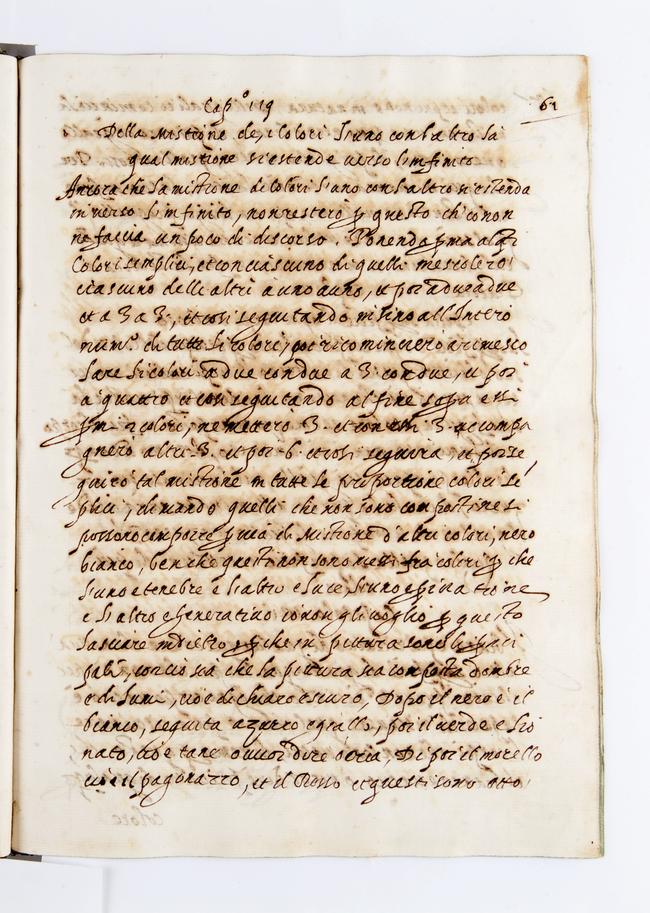 Cap.º 119
61
Della Mistione de, i Colori l'uno con l'altro la
qual mistione si estende verso l'infinito
Ancora che la mistione di Colori l'uno con l'altro si estenda
in verso l'infinito, non resterò p questo ch'io non
ne faccia un poco di discorso. Ponendo p.ma alq.ti
Colori semplici, et con ciascuno di quelli mescolerò
ciascuno delli altri a uno a uno, et poi a due a due
et a 3 a 3, et così seguitando insino all'Intero
num.º di tutti li Colori, poi ricomincierò a rimesco
lare li colori a due con due a 3 con due, et poi
a quattro et così seguitando al fine sopra essi
p.mi 2 colori, ne metterò 3. et con essi 3 accompa
gnerò altri 3. et poi 6. et così seguirà, et poi se
guirò tal mistione in tutte le proportione colori sē
plici, dimando quelli che non sono composti ne si
possono comporre p via di Mistione d'altri colori, nero
bianco, ben che questi non sono messi fra colori p che
l'uno è tenebre e l'altro è luce, l'uno è privatione
e l'altro è generativo io non gli voglio p questo
lasciare indietro, p che in pittura sono li princi
pali, conciò sia che la pittura sia composta d'ombre
e di lumi, cio è di chiaro e scuro, Dopo il nero è il
bianco, seguita azurro e giallo, poi il verde e lio
nato, cio è tanè o vuoi dire ocria, Di poi il morello
cio è il pagonazzo, et il Rosso et questi sono otto
colore